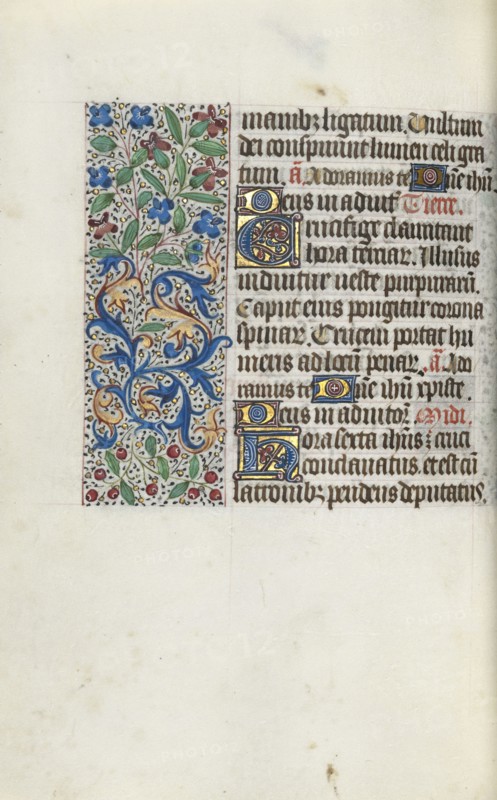 manibꝫ ligatum. Vultum
dei conspuunt lumen celi gra
tum. a͠. Adoramus te D͠ne ihu͠
Deus in adiut͠ Tierce.
Crucifige clamitant
hora terciar͠. Illusus
induitur ueste purpurar͠.
Caput eius pongitur corona
spinar͠. Crucem portat hu
meris ad locu͠ penar͠. a͠. Ado
ramus te D͠ne ihu͠ xp͠iste.
Deus in adiutor͠ Midi.
Hora sexta ih͠us ē cruci
conclauatus. et est cu͠
latronibꝫ pendens deputatus.